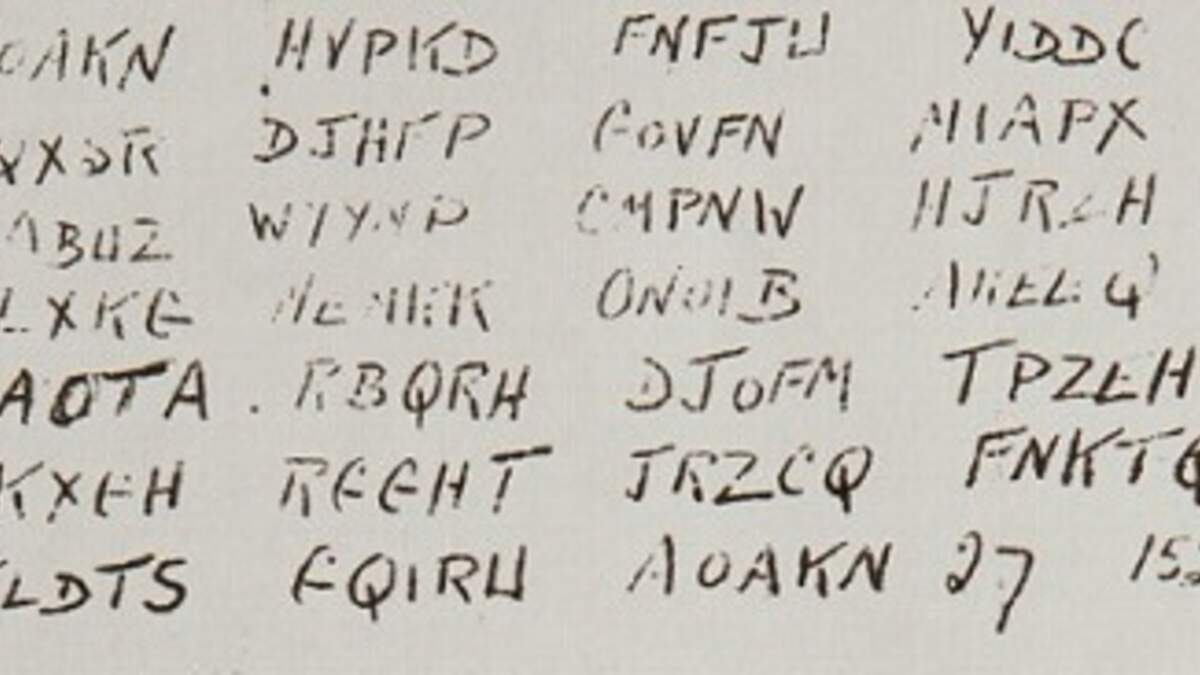 OAKN HVPKD FNFJW YIDDC
QXSR DJHFP GOVFN MIAPX
ABUZ WYYNP CMPNW HJRZH
LXKG MEMKK ONOIB AKEEQ
AOTA RBQRH DJOFM TPZEH
KXGH RGGHT JRZCQ FNKTQ
LDTS GQIRW AOAKN 27 152